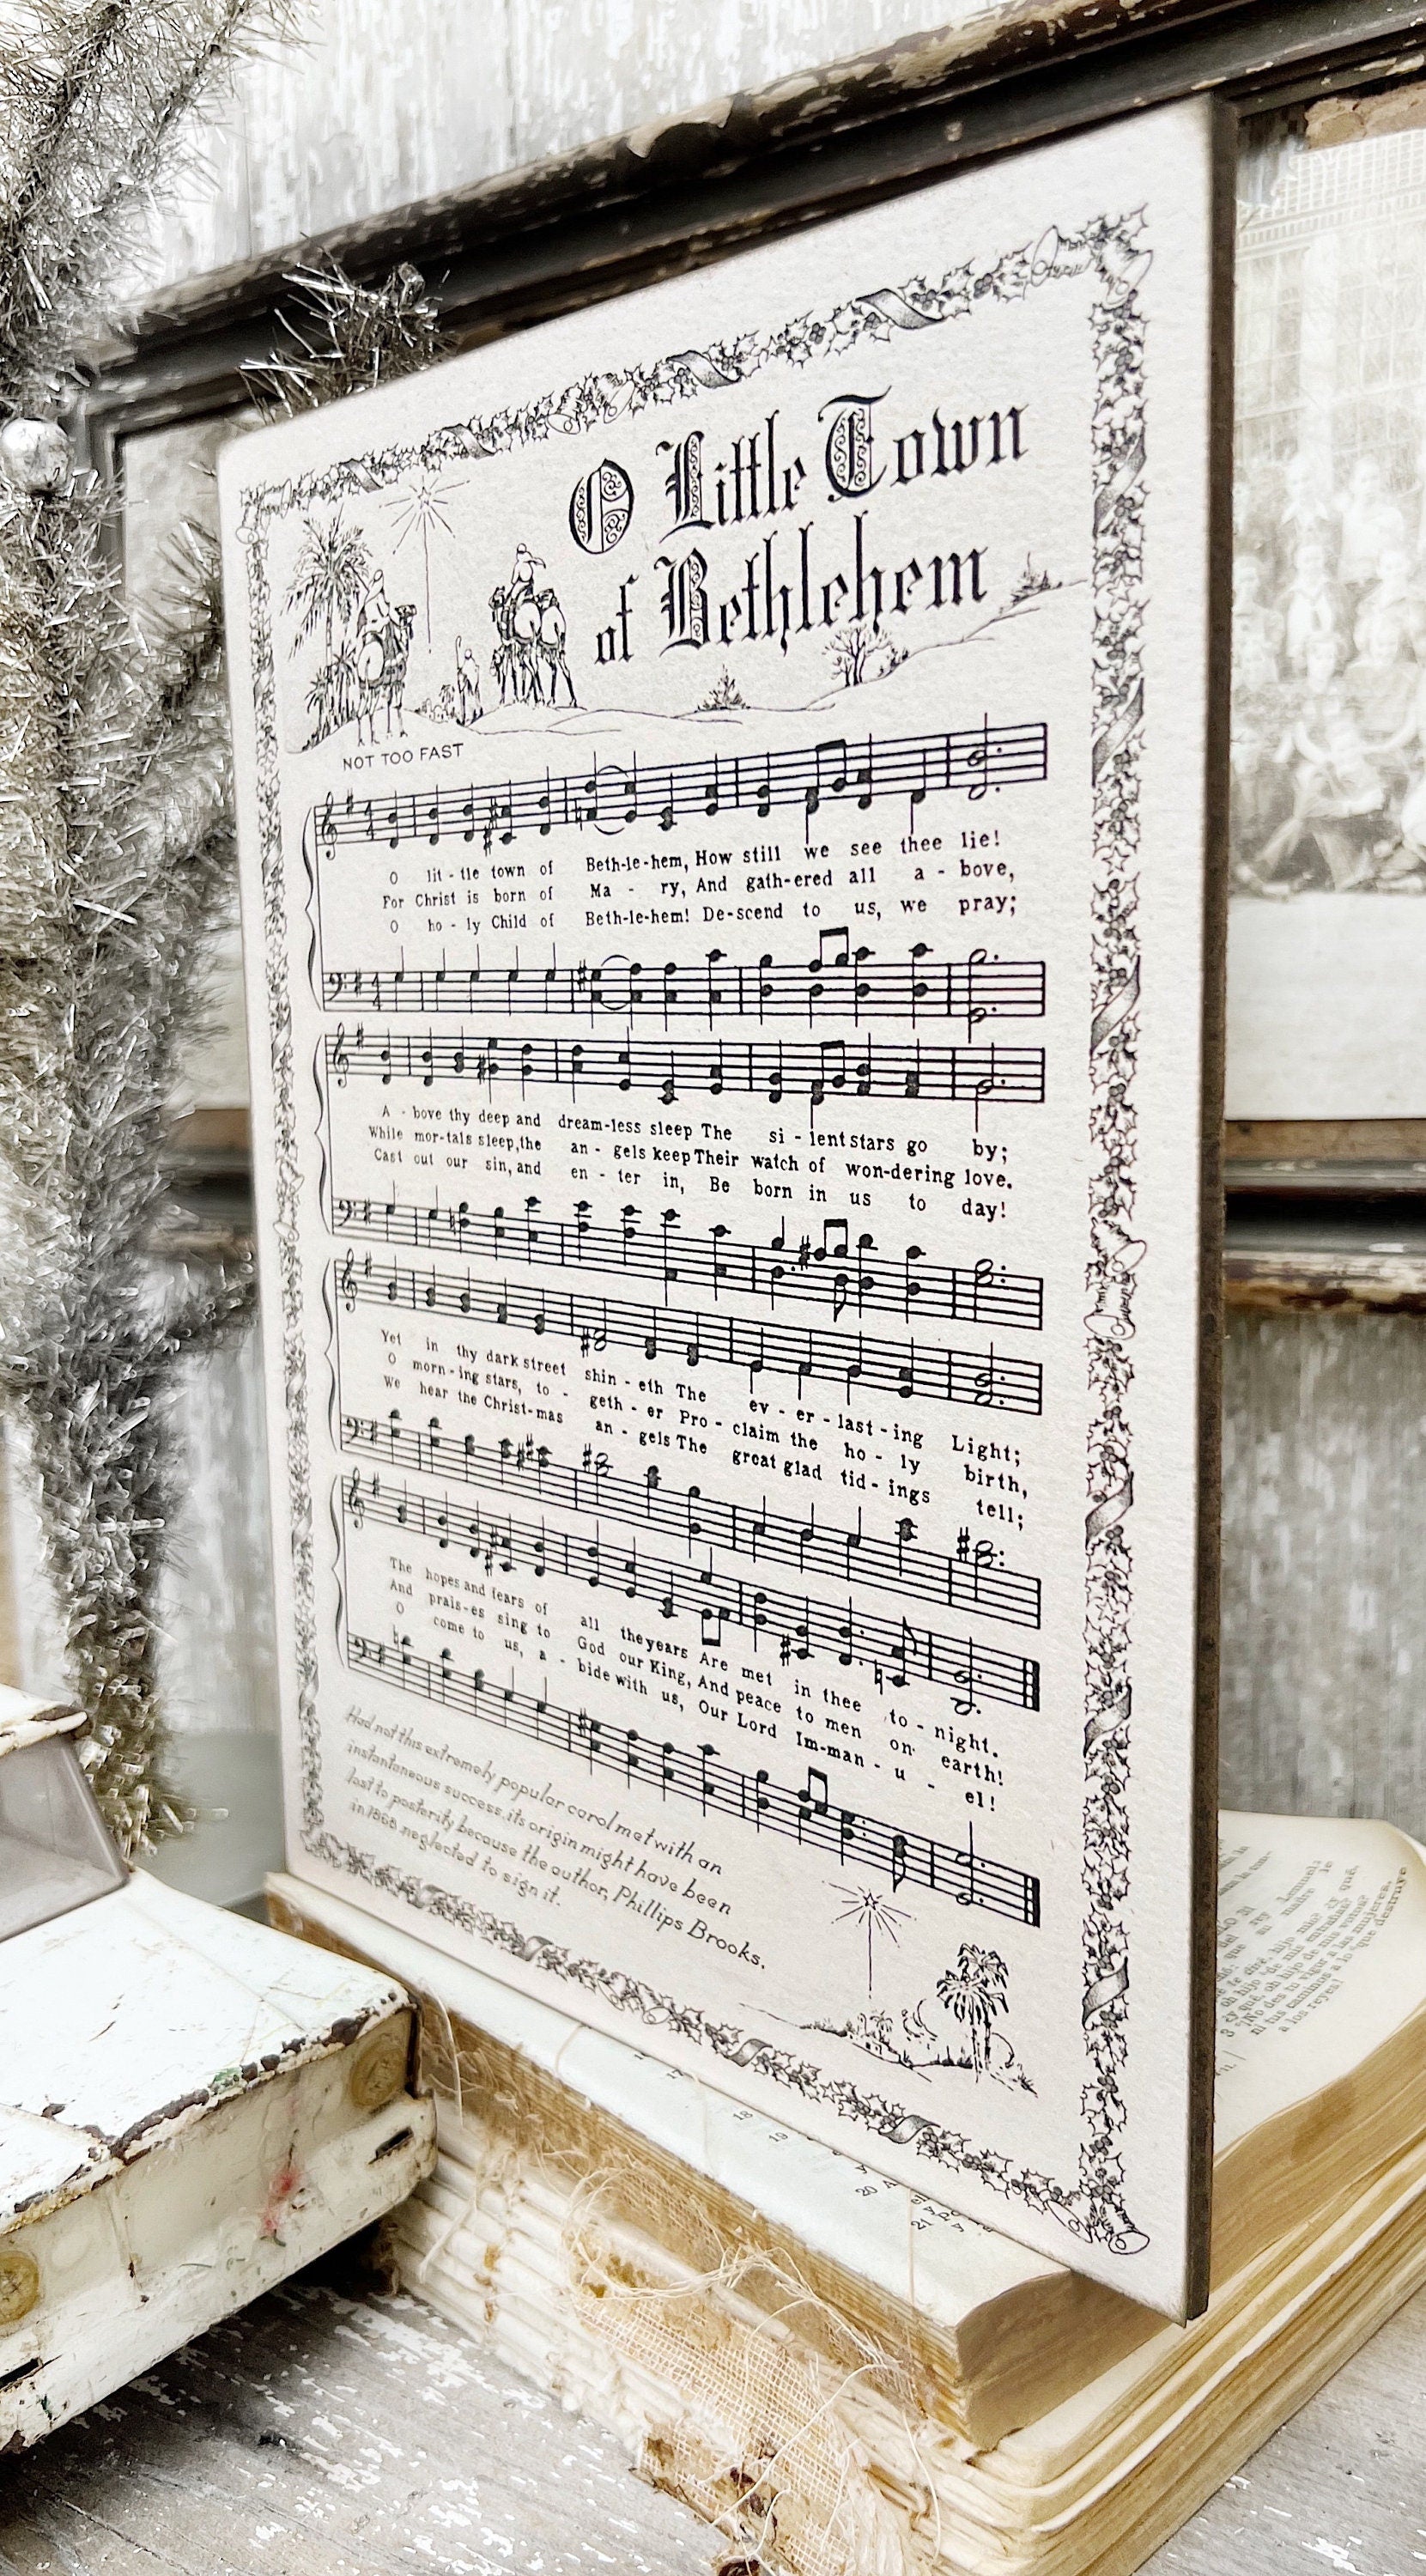 O Little Town
of Bethlehem
NOT TOO FAST
O lit - tle town of Beth-le-hem, How still we see thee lie!
For Christ is born of Ma - ry, And gath-ered all a - bove,
O ho - ly Child of Beth-le-hem! De-scend to us, we pray;
A - bove thy deep and dream-less sleep The si - lent stars go by;
While mor-tals sleep, the an - gels keep Their watch of won-dering love.
Cast out our sin, and en - ter in, Be born in us to day!
Yet in thy dark street shin - eth The ev - er - last - ing Light;
O morn - ing stars, to - geth - er Pro - claim the ho - ly birth,
We hear the Christ-mas an - gels The great glad tid - ings tell;
The hopes and fears of all the years Are met in thee to - night.
And prais-es sing to God our King, And peace to men on earth!
O come to us, a - bide with us, Our Lord Im-man - u - el!
Had not this extremely popular carol met with an
instantaneous success, its origin might have been
lost to posterity because the author, Phillips Brooks,
in 1868 neglected to sign it.
17
18
19
20
21
a los reyes!